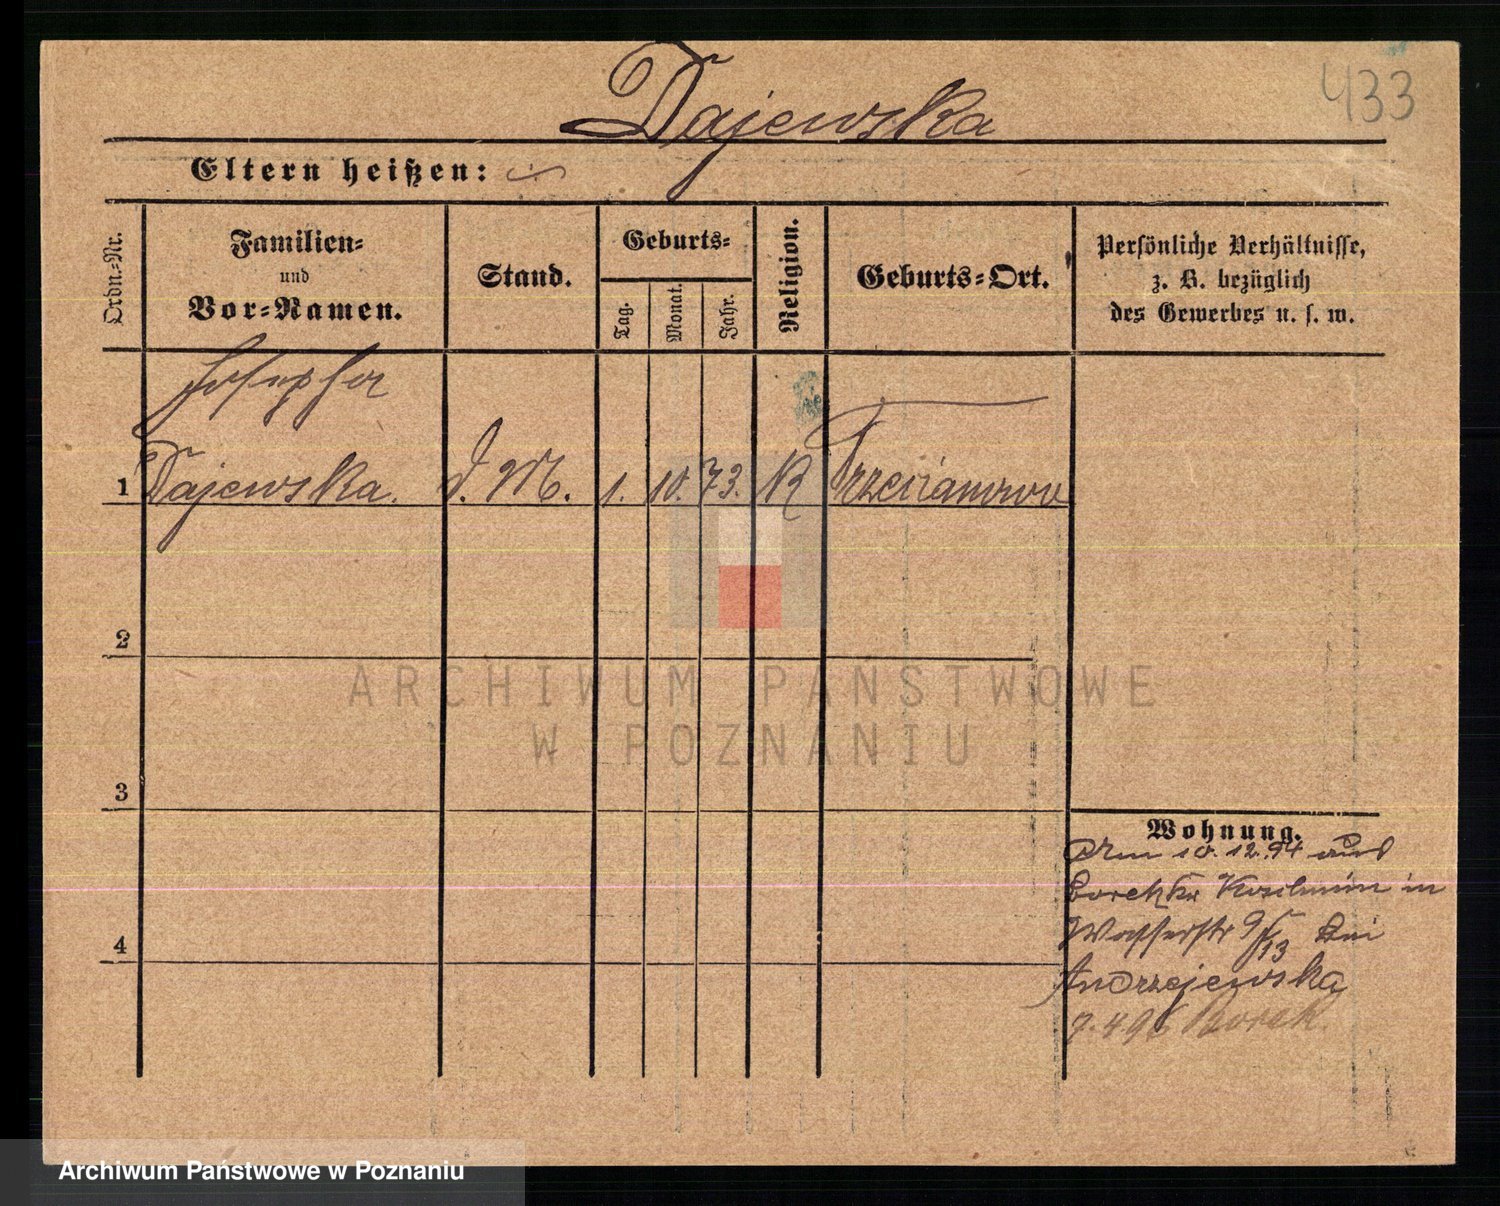 433
Dajewska
Eltern heißen:
Ordn.-Nr.
Familien-
und
Vor-Namen.
Stand.
Geburts-
Tag.
Monat.
Jahr.
Religion.
Geburts-Ort.
Persönliche Verhältnisse,
z. B. bezüglich
des Gewerbes u. s. w.
Josepha
1 Dajewska. D. M. 1. 10. 73. K
2
3
4
ARCHIWUM PAŃSTWOWE
W POZNANIU
Wohnung.
Am 10.12.94 aus
in
Wasserstr 9/13 bei
Andrzejewska
7.4.96 Borek
Archiwum Państwowe w Poznaniu